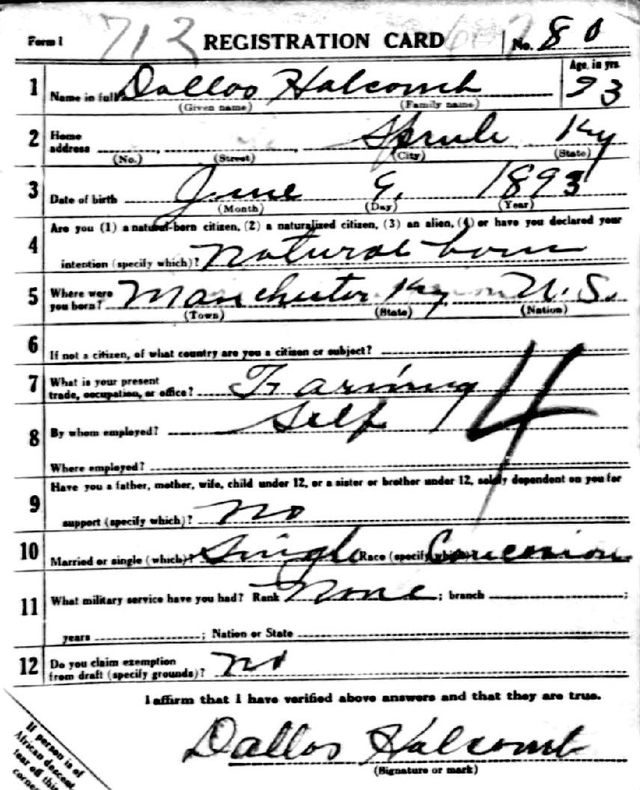 Form 1 713 REGISTRATION CARD No. 80
1 Name in full Dallos Halcomb Age, in yrs. 23
(Given name) (Family name)
2 Home address Sprule Ky
(No.) (Street) (City) (State)
3 Date of birth June 9, 1893
(Month) (Day) (Year)
4 Are you (1) a natural-born citizen, (2) a naturalized citizen, (3) an alien, (4) or have you declared your
intention (specify which)? Natural born
5 Where were you born? Manchester Ky U.S.
(Town) (State) (Nation)
6 If not a citizen, of what country are you a citizen or subject?
7 What is your present trade, occupation, or office? Farming
8 By whom employed? Self
Where employed?
4
9 Have you a father, mother, wife, child under 12, or a sister or brother under 12, solely dependent on you for
support (specify which)? No
10 Married or single (which)? Single Race (specify which)? Caucasian
11 What military service have you had? Rank None ; branch ;
years ; Nation or State
12 Do you claim exemption from draft (specify grounds)? No
I affirm that I have verified above answers and that they are true.
Dallos Halcomb
(Signature or mark)
If person is of
African descent,
tear off this
corner